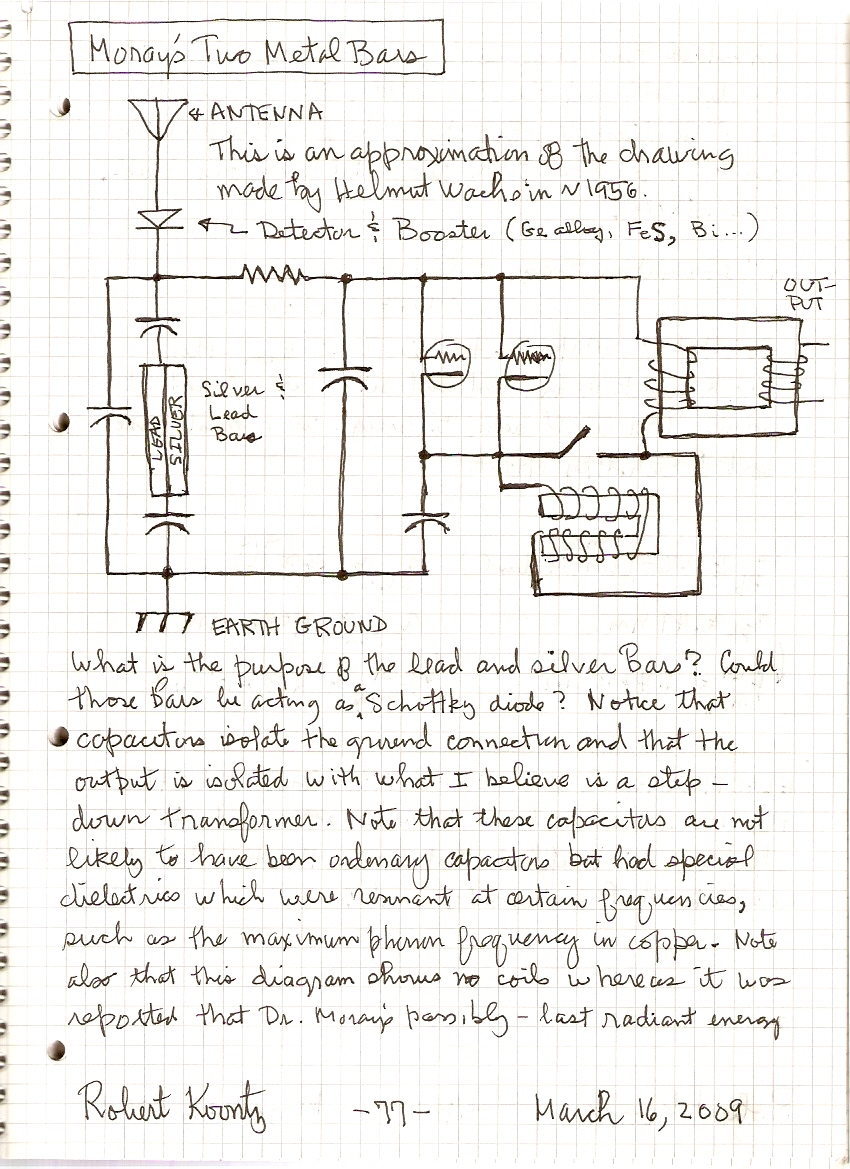 Moray's Two Metal Bars
ANTENNA
This is an approximation of the drawing
made by Helmut Wachs in ~1956.
Detector & Booster (Ge alloy, FeS, Bi...)
OUT-
PUT
Silver &
Lead
Bars
LEAD
SILVER
EARTH GROUND
What is the purpose of the lead and silver Bars? Could
those Bars be acting as a Schottky diode? Notice that
capacitors isolate the ground connection and that the
output is isolated with what I believe is a step-
down transformer. Note that these capacitors are not
likely to have been ordenary capacitors but had special
dielectrics which were resonant at certain frequencies,
such as the maximum phonon frequency in copper. Note
also that this diagram shows no coils whereas it was
reported that Dr. Moray's possibly-last radiant energy
Robert Koontz
-77-
March 16, 2009